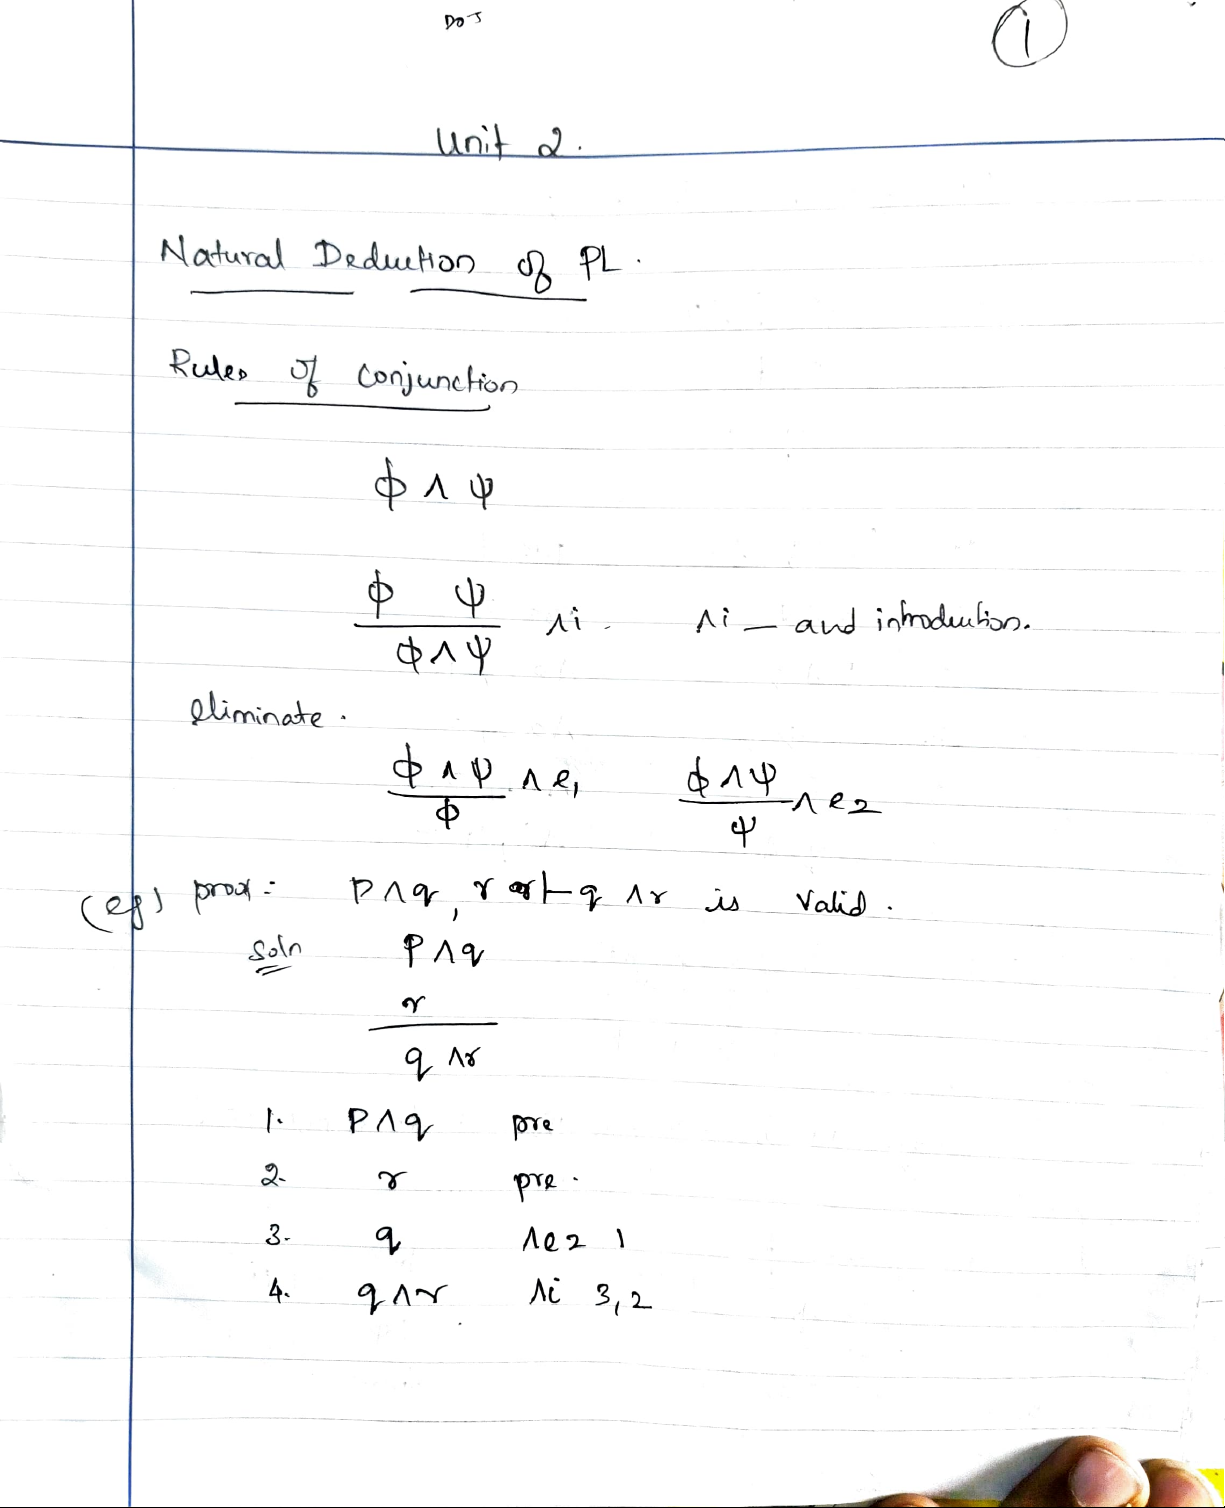 DOJ
1
Unit 2.
Natural Deduction of PL.
Rules of conjunction
ϕ ∧ ψ
ϕ ψ
∧i - ∧i — and introduction.
ϕ∧ψ
eliminate.
ϕ∧ψ ∧e1 ϕ∧ψ ∧e2
ϕ ψ
(eg) proof: p∧q, r ⊢ q ∧r is valid.
Soln p∧q
r
q ∧r
1. p∧q pre
2. r pre.
3. q ∧e2 1
4. q∧r ∧i 3,2